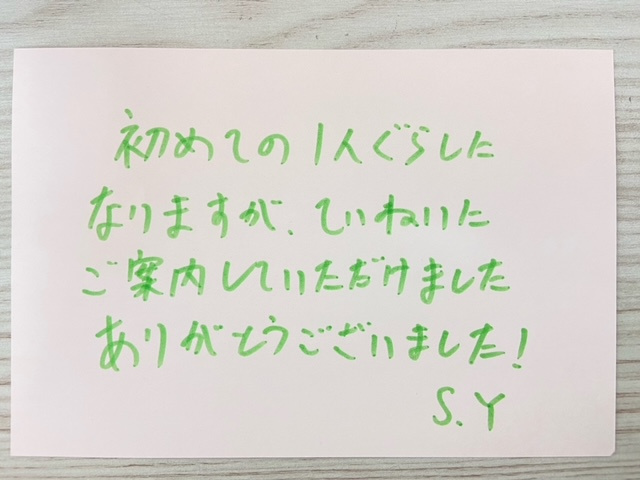 初めての1人ぐらしに
なりますが、ていねいに
ご案内していただけました
ありがとうございました!
S.Y